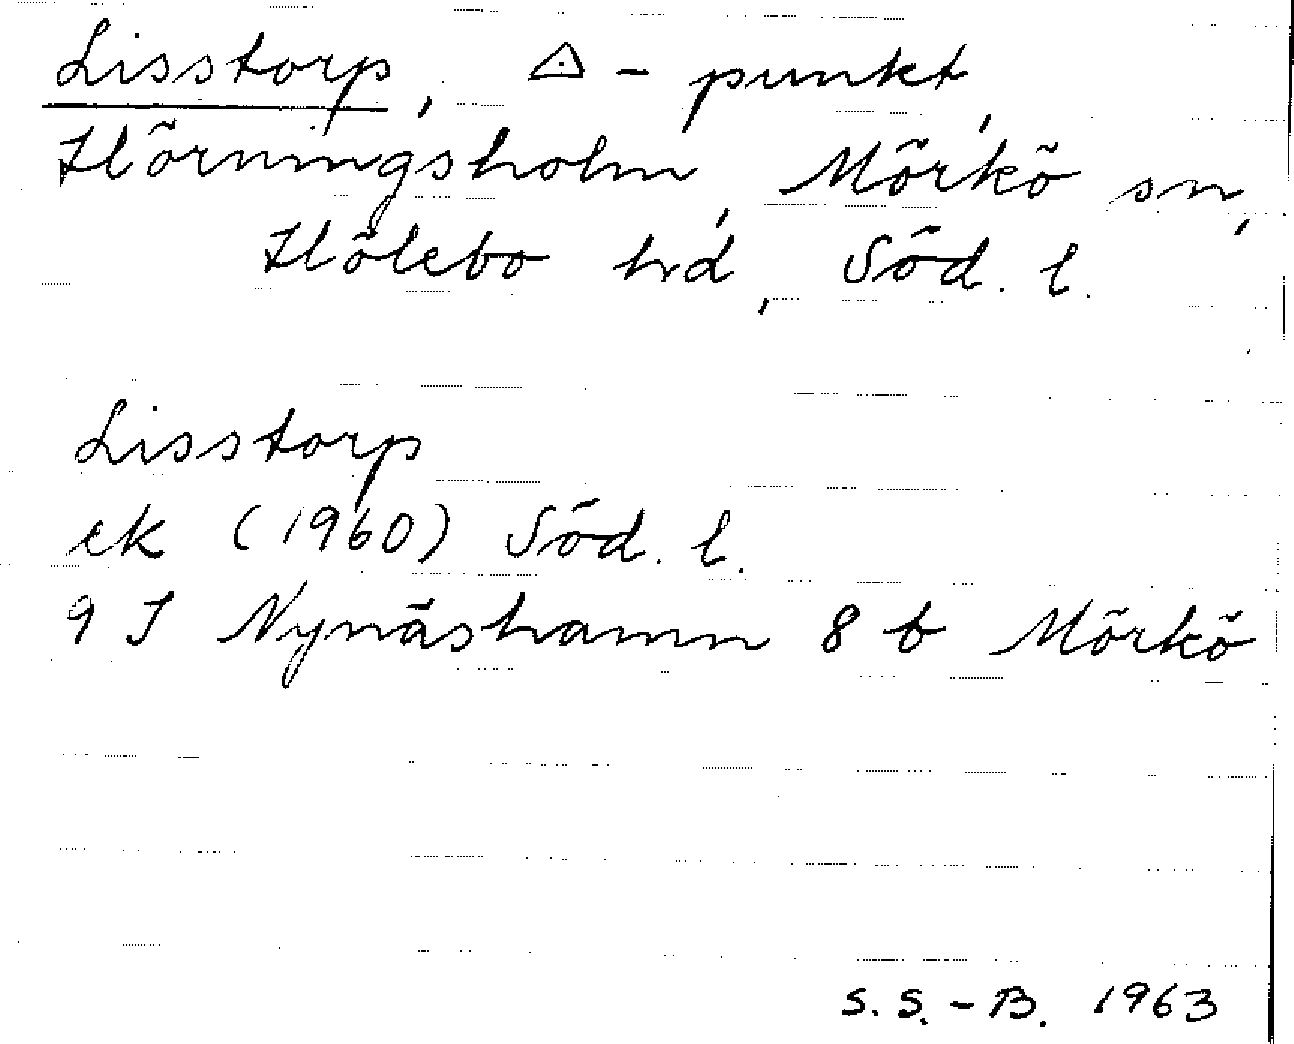 Lisstorp, △ - punkt,
Hörningsholm, Mörkö sn,
Hölebo hd, Söd. l.
Lisstorp
ek (1960) Söd. l.
9 I Nynäshamn 8 b Mörkö
S.S.-B. 1963